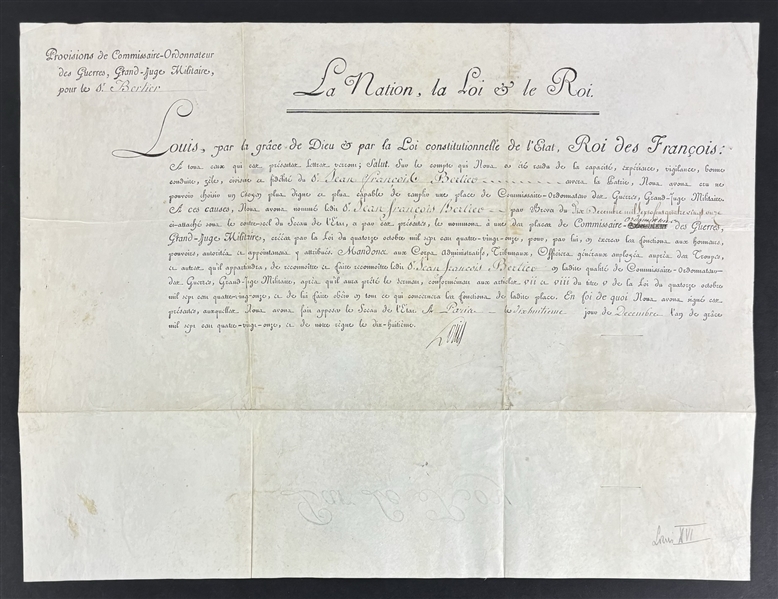 Provisions de Commissaire-Ordonnateur
des Guerres, Grand-Juge Militaire,
pour le S.r Berlier
La Nation, la Loi & le Roi.
Louis, par la grâce de Dieu & par la Loi constitutionnelle de l'Etat, Roi des François:
A tous ceux qui ces présentes Lettres verront; Salut. Sur le compte qui Nous a été rendu de la capacité, expérience, vigilance, bonne
conduite, zèle, civisme et fidélité du S.r Jean françois Berlier envers la Patrie, Nous avons cru ne
pouvoir choisir un Citoyen plus digne et plus capable de remplir une place de Commissaire-Ordonnateur des Guerres, Grand-Juge Militaire.
A ces causes, Nous avons nommé ledit S.r Jean françois Berlier par Brevet du Dix Decembre mil sept cent quatre vingt onze
ci-attaché sous le contre-scel du Sceau de l'Etat, et par ces présentes, le nommons à une des places de Commissaire-ordonnateur des Guerres,
Grand-Juge Militaire, créées par la Loi du quatorze octobre mil sept cent quatre-vingt-onze, pour, par lui, en exercer les fonctions aux honneurs,
pouvoirs, autorités et appointemens y attribués. Mandons aux Corps Administratifs, Tribunaux, Officiers généraux employés auprès des Troupes,
et autres qu'il appartiendra, de reconnoître et faire reconnoître ledit S.r Jean françois Berlier en ladite qualité de Commissaire-Ordonnateur
des Guerres, Grand-Juge Militaire, après qu'il aura prêté le serment, conformément aux articles VII et VIII du titre V de la Loi du quatorze octobre
mil sept cent quatre-vingt-onze, et de lui faire obéir en tout ce qui concernera les fonctions de ladite place. En foi de quoi Nous avons signé ces
présentes, auxquelles Nous avons fait apposer le Sceau de l'Etat. A Paris le dixhuitieme jour de Decembre l'an de grâce
mil sept cent quatre-vingt-onze, et de notre règne le dix-huitième.
Louis
Par le Roi
Louis XVI